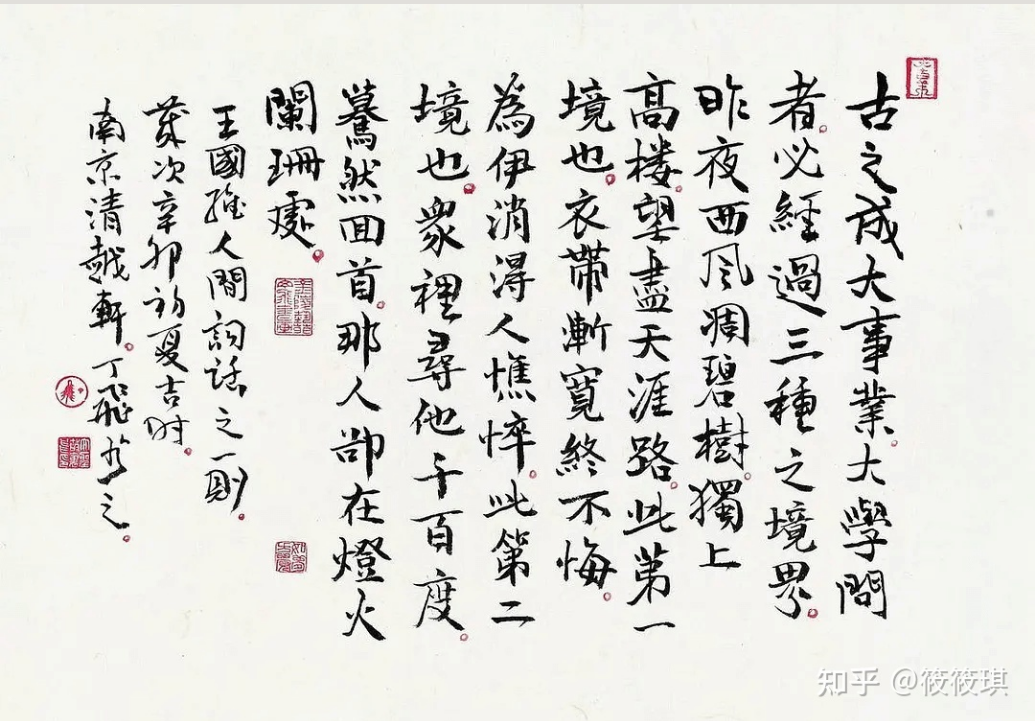 古之成大事業大學問
者必經過三種之境界
昨夜西风凋碧樹獨上
高楼望盡天涯路此第一
境也衣帶漸寬終不悔
為伊消得人憔悴此第二
境也衆裡尋他千百度
驀然回首那人卻在燈火
闌珊處
王國維人間詞話之一則
歲次辛卯初夏吉时
南京清越軒丁飛书之
知乎 @筱筱琪